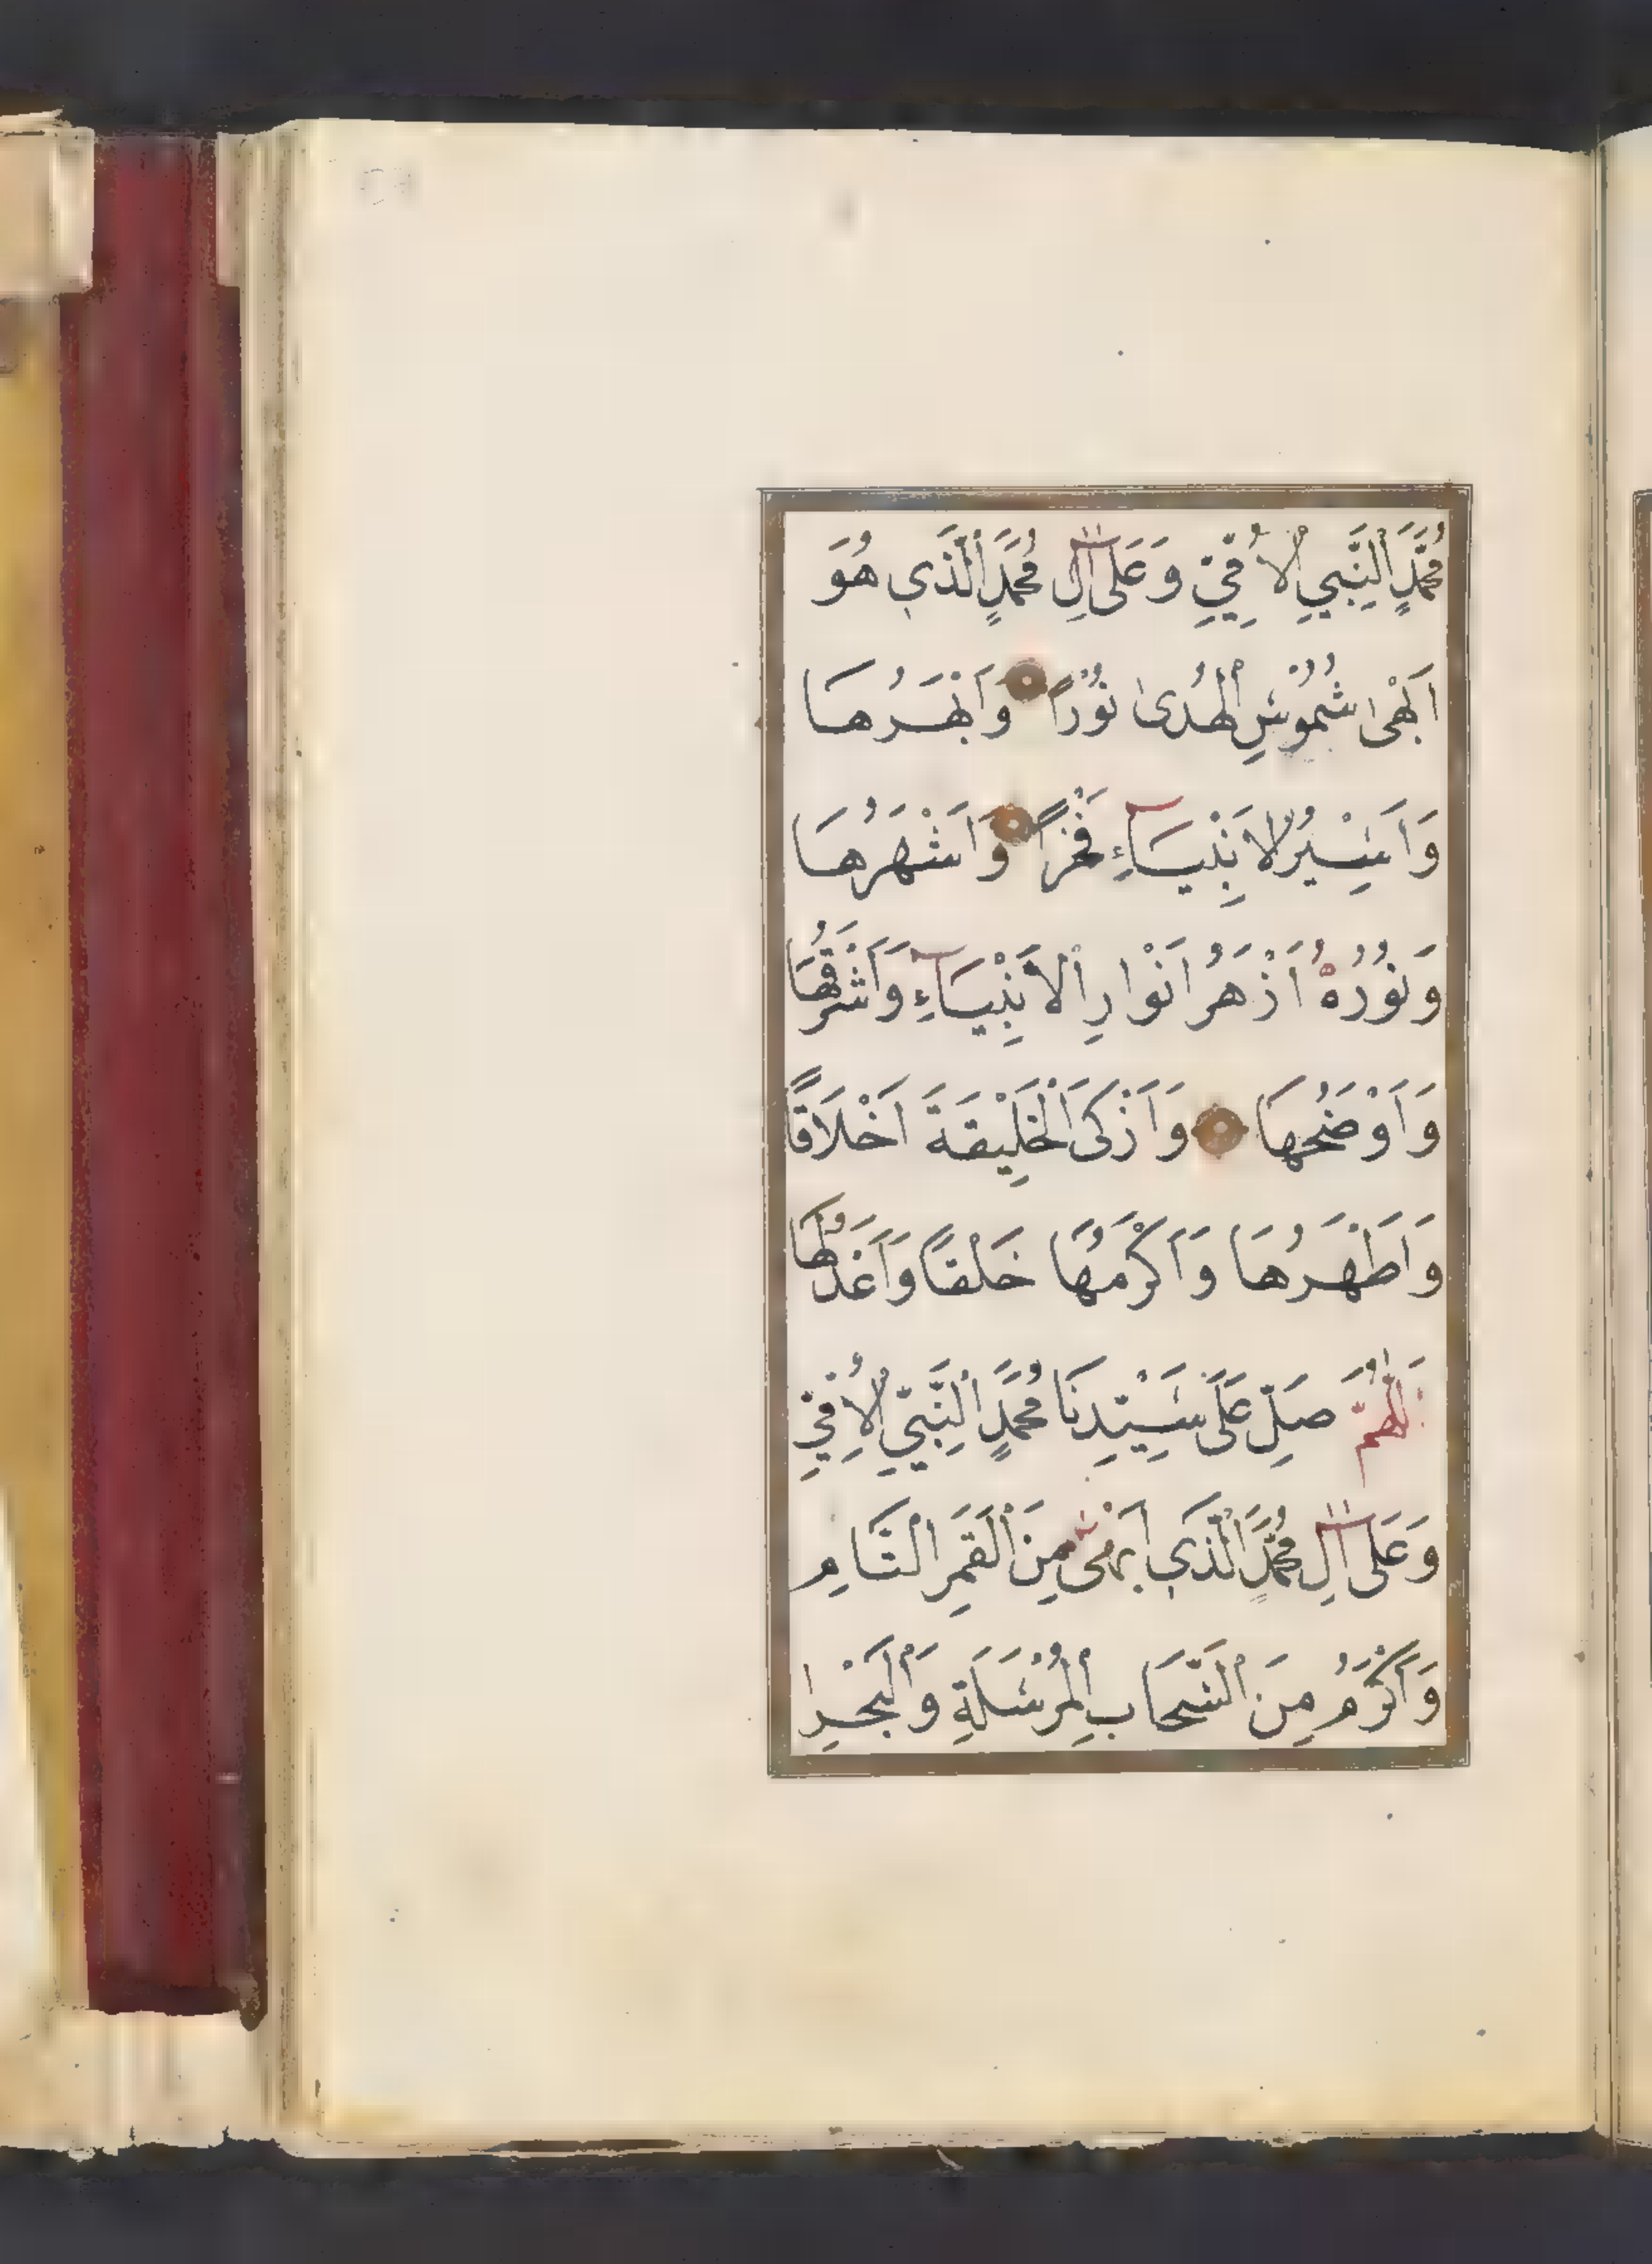 مُحَمَّدٍ النَّبِيِّ الْاُمِّيِّ وَعَلَى اٰلِ مُحَمَّدٍ الَّذِي هُوَ
اَبْهٰى شُمُوْسِ الْهُدٰى نُوْرًا وَاَبْهَرُهَا
وَاَسْيَرُ الْاَنْبِيَاءِ فَخْرًا وَاَشْهَرُهَا
وَنُوْرُهُ اَزْهَرُ اَنْوَارِ الْاَنْبِيَاءِ وَاَشْرَقُهَا
وَاَوْضَحُهَا وَاَزْكَى الْخَلِيْقَةَ اَخْلَاقًا
وَاَطْهَرُهَا وَاَكْرَمُهَا خَلْقًا وَاَعْدَلُهَا
اَللّٰهُمَّ صَلِّ عَلٰى سَيِّدِنَا مُحَمَّدٍ النَّبِيِّ الْاُمِّيِّ
وَعَلَى اٰلِ مُحَمَّدٍ الَّذِي اَبْهٰى مِنَ الْقَمَرِ التَّامِ
وَاَكْرَمُ مِنَ السَّحَابِ الْمُرْسَلَةِ وَالْبَحْرِ ا